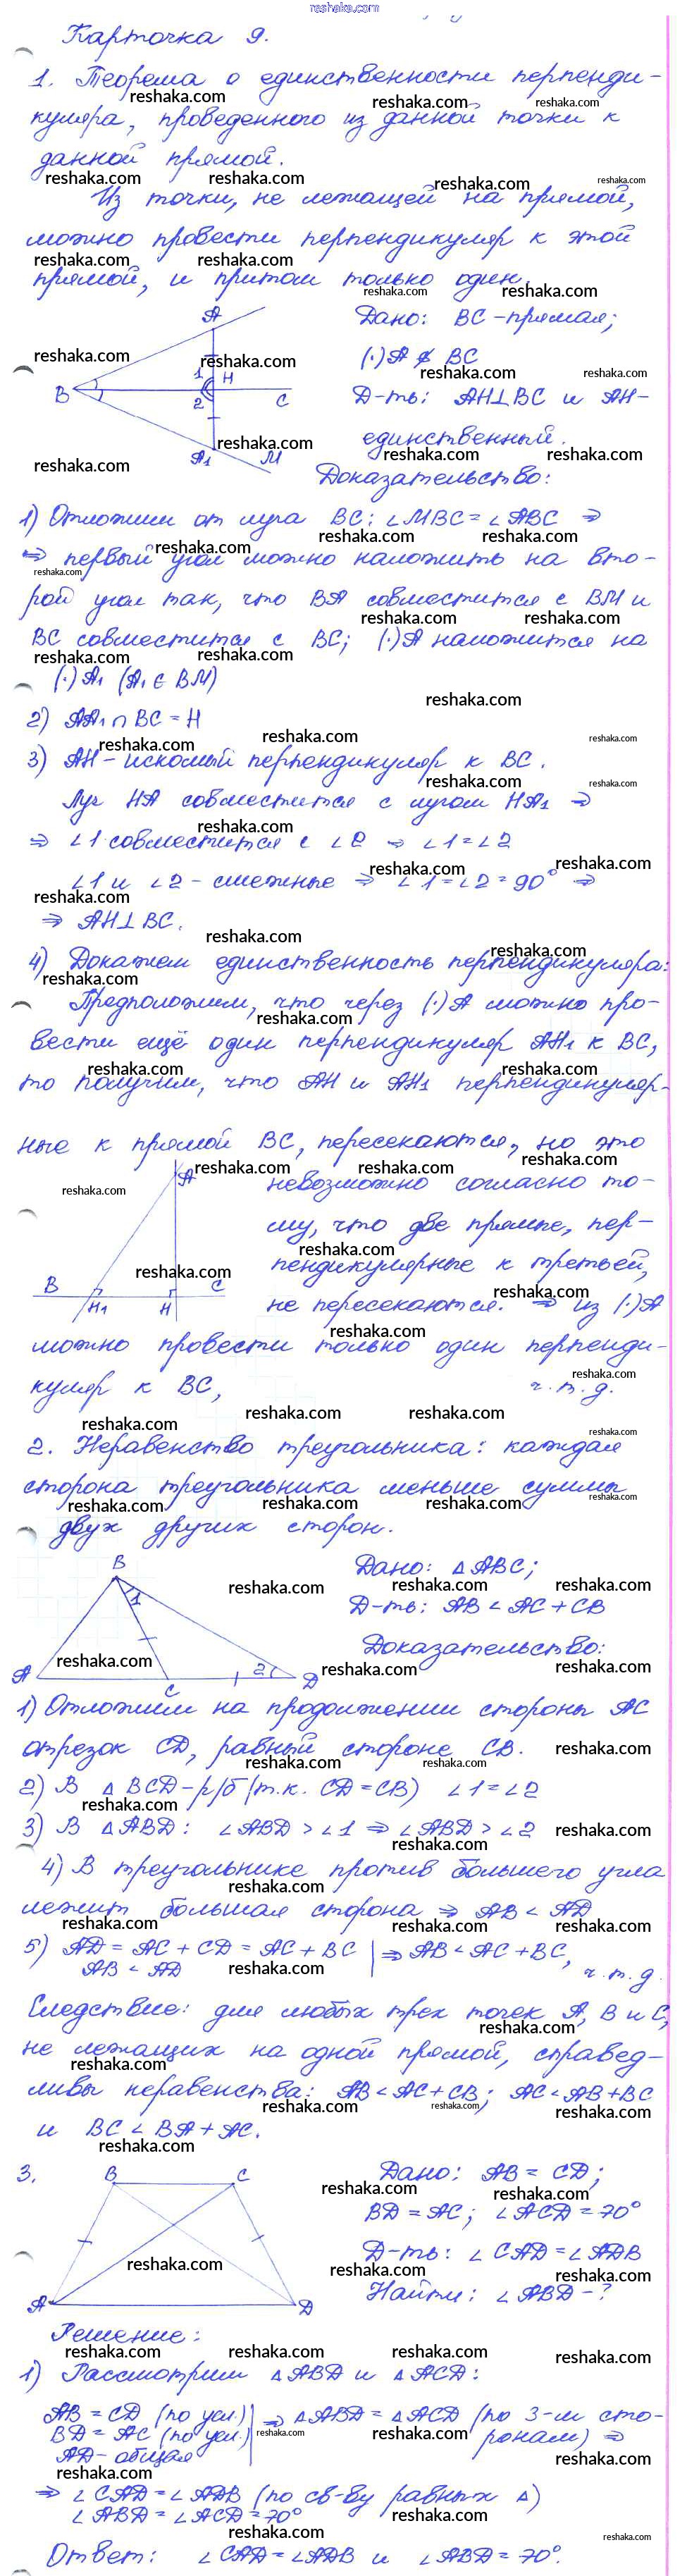 reshaka.com
Карточка 9.
1. Теорема о единственности перпенди-
куляра, проведенного из данной точки к
данной прямой.
Из точки, не лежащей на прямой,
можно провести перпендикуляр к этой
прямой, и притом только один.
Дано: BC - прямая;
(·)A ∉ BC
Д-ть: AH⊥BC и AH-
единственный.
A
B
1
H
2
C
A1
M
Доказательство:
1) Отложим от луча BC: ∠MBC = ∠ABC ⇒
⇒ первый угол можно наложить на вто-
рой угол так, что BA совместится с BM и
BC совместится с BC; (·)A наложится на
(·)A1 (A1 ∈ BM)
2) AA1 ∩ BC = H
3) AH - искомый перпендикуляр к BC.
Луч HA совместится с лучом HA1 ⇒
⇒ ∠1 совместится с ∠2 ⇒ ∠1 = ∠2
∠1 и ∠2 - смежные ⇒ ∠1 = ∠2 = 90° ⇒
⇒ AH⊥BC.
4) Докажем единственность перпендикуляра:
Предположим, что через (·)A можно про-
вести ещё один перпендикуляр AH1 к BC,
то получим, что AH и AH1 перпендикуляр-
ные к прямой BC, пересекаются, но это
невозможно согласно то-
му, что две прямые, пер-
пендикулярные к третьей,
не пересекаются. ⇒ из (·)A
A
B
H1
H
C
можно провести только один перпенди-
куляр к BC,
ч.т.д.
2. Неравенство треугольника: каждая
сторона треугольника меньше суммы
двух других сторон.
Дано: △ABC;
Д-ть: AB < AC + CB
Доказательство:
B
1
A
C
2
D
1) Отложим на продолжении стороны AC
отрезок CD, равный стороне CB.
2) В △BCD - р/б (т.к. CD = CB) ∠1 = ∠2
3) В △ABD: ∠ABD > ∠1 ⇒ ∠ABD > ∠2
4) В треугольнике против большего угла
лежит большая сторона ⇒ AB < AD
5) AD = AC + CD = AC + BC | ⇒ AB < AC + BC,
AB < AD
ч.т.д.
Следствие: для любых трех точек A, B и C,
не лежащих на одной прямой, справед-
ливы неравенства: AB < AC + CB; AC < AB + BC
и BC < BA + AC.
3.
B
C
A
D
Дано: AB = CD;
BD = AC; ∠ACD = 70°
Д-ть: ∠CAD = ∠ADB
Найти: ∠ABD - ?
Решение:
1) Рассмотрим △ABD и △ACD:
AB = CD (по усл.) | ⇒ △ABD = △ACD (по 3-м сто-
BD = AC (по усл.) | ронам) ⇒
AD - общая
⇒ ∠CAD = ∠ADB (по св-ву равных △)
∠ABD = ∠ACD = 70°
Ответ: ∠CAD = ∠ADB и ∠ABD = 70°.